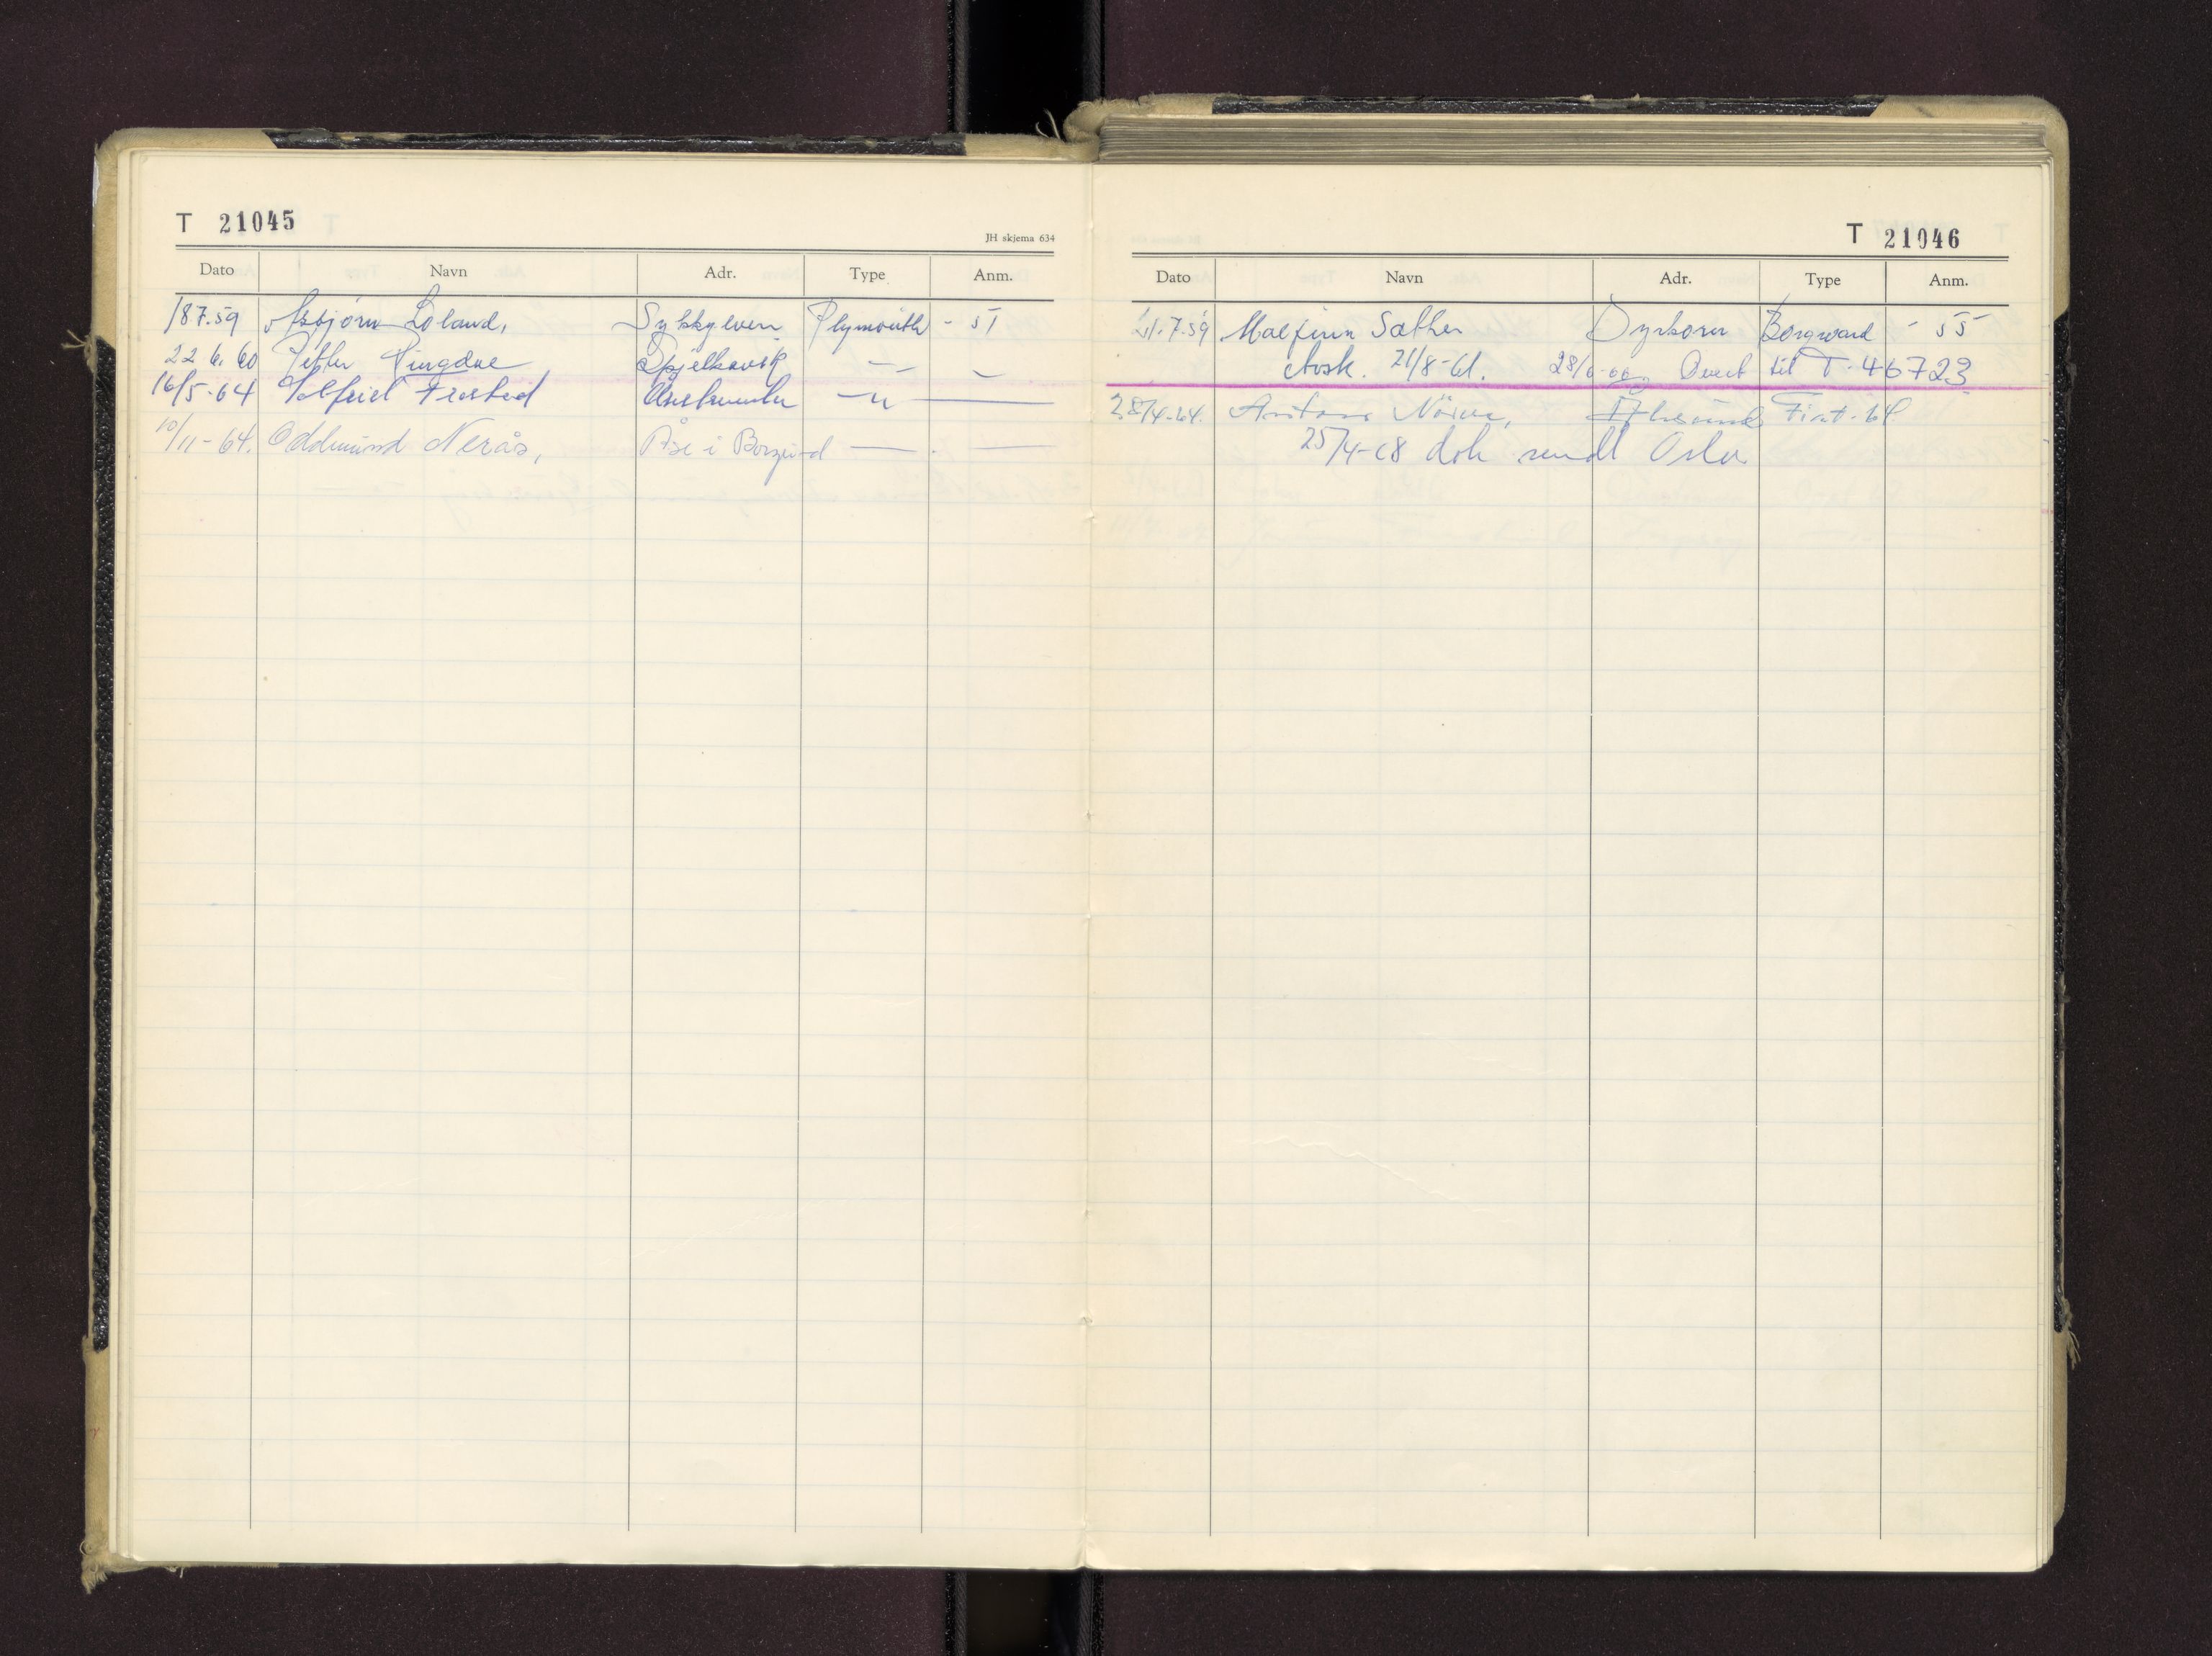 T 21045
JH skjema 634
Dato Navn Adr. Type Anm.
18.7.59 Asbjörn Löland, Sykkylven Plymouth - 51
22.6.60 Petter Spjelkavik — —
16/5-64 —"— ——
10/11-64. Oddmund Nerås, Åse i Borgund —— ——
T 21046
Dato Navn Adr. Type Anm.
21.7.59 Malfinn Sæther Dyrkorn Borgward - 55
Avsk. 21/8-61. 28/6-66 Overt til T-46723
28/4-64. Fiat-64
25/4-68 dok sendt Oslo